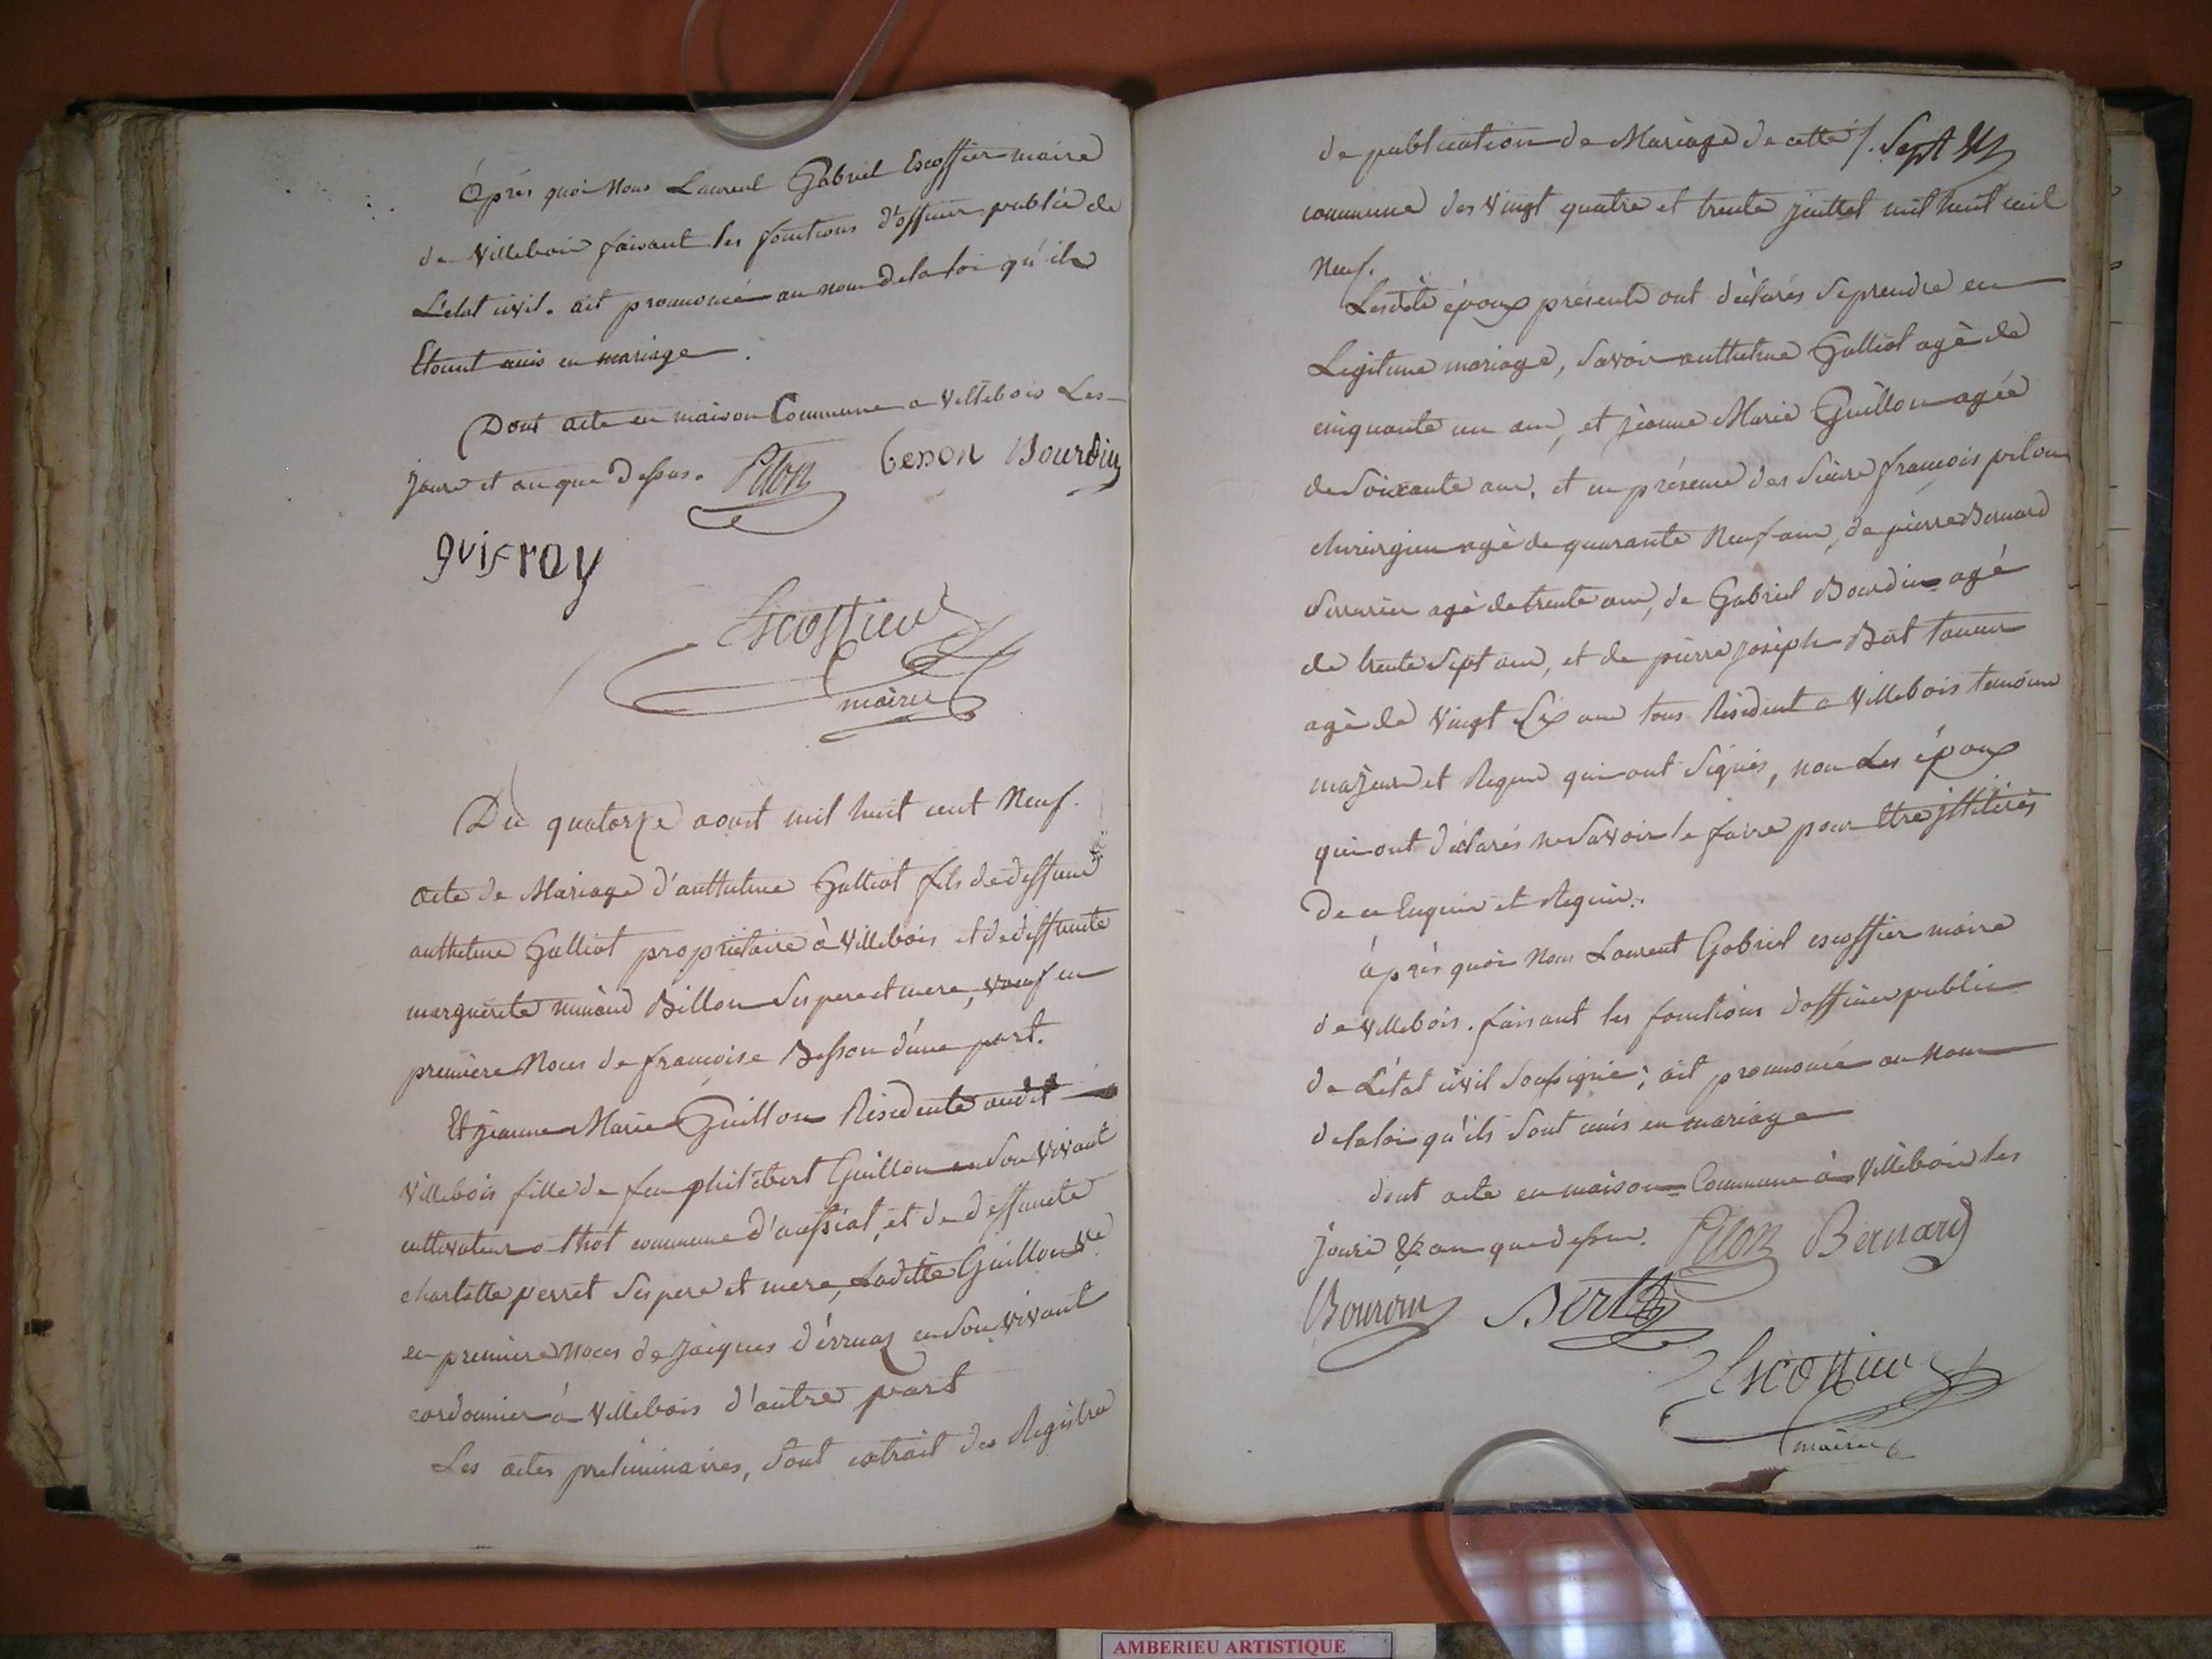 Après quoi Nous Laurent Gabriel Escoffier maire
de Villebois faisant les fonctions d'officier public de
L'etat civil. ait prononcé au nom de la loi qu'ils
Etoient unis en mariage.
Dont acte en maison Commune a Villebois Les
jour et an que Dessus. Pilon Benon Bourdin
guifray
Escoffier
maire
Du quatorze aoust mil huit cent Neuf.
acte de Mariage d'anthelme Galliot fils de deffunt
anthelme Galliot propriétaire à Villebois et de deffunte
marguerite Billon Ses pere et mere, veuf en
première Noces de françoise Besson d'une part.
Et jeanne Marie Guillon Résidente audit
Villebois fille de feu philibert Guillon en Son Vivant
cultivateur a thol commune d'aussiat, et de deffuncte
charlotte perret Ses pere et mere, Laditte Guillon Ve
en premiere Noces de Jacques derruaz en Son Vivant
cordonnier à Villebois d'autre part
Les actes preliminaires, Sont extrait des Registre
de publication de Mariage de cette /. Sept
commune des Vingt quatre et trente juillet mil huit cent
Neuf.
Lesdits époux présents ont déclarés Se prendre en
Legitime mariage, Savoir anthelme Galliot agé de
cinquante un ans, et jeanne Marie Guillon agée
de Soixante ans, et en présence des Sieurs françois pilon
chirurgien agé de quarante Neuf ans, de pierre Bernard
Serrurier agé de trente ans, de Gabriel Bourdin agé
de trente Sept ans, et de pierre joseph Bert taneur
agé de Vingt Six ans tous Résident a Villebois temoins
majeurs et Requis qui ont Signés, non Les époux
qui ont déclarés ne Savoir le faire pour être illitérés
De ce Enquis et Requis.
Après quoi Nous Laurent Gabriel escoffier maire
de Villebois. faisant les fonctions d'officier public
de L'état civil Soussigné; ait prononcé au Nom
de la loi qu'ils Sont unis en mariage
dont acte en maison Commune à Villebois les
jour & an que dessus. Pilon Bernard
Bourdin Bert
Escoffier
maire
AMBERIEU ARTISTIQUE